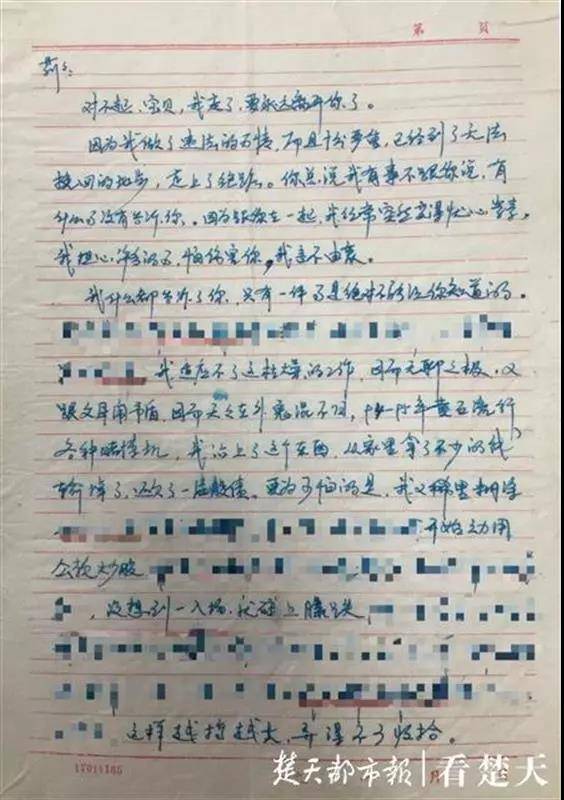 第 頁
对不起,宝贝,我走了,要永远离开你了。
因为我做了违法的事情,而且十分严重,已经到了无法
挽回的地步,走上了绝路。你总说我有事不跟你说,有
什么事没有告诉你。因为跟你在一起,我经常突然变得忧心
我担心 怕伤害你,我身不由衷。
我什么都告诉了你,只有一件事是绝对不能让你知道的。
我适应不了这枯燥的工作,因而无聊之极,又
跟父母闹矛盾,因而天天在外鬼混不回, 年黄石流行
各种赌博机,我沾上了这个东西,从家里拿了不少的钱
输掉了,还欠了一屁股债。更为可怕的是,我又稀里糊涂
开始动用
公款炒股
,没想到一入场,就碰上暴跌
这样越搞越大,弄得不可收拾。
17011165
楚天都市報 看楚天